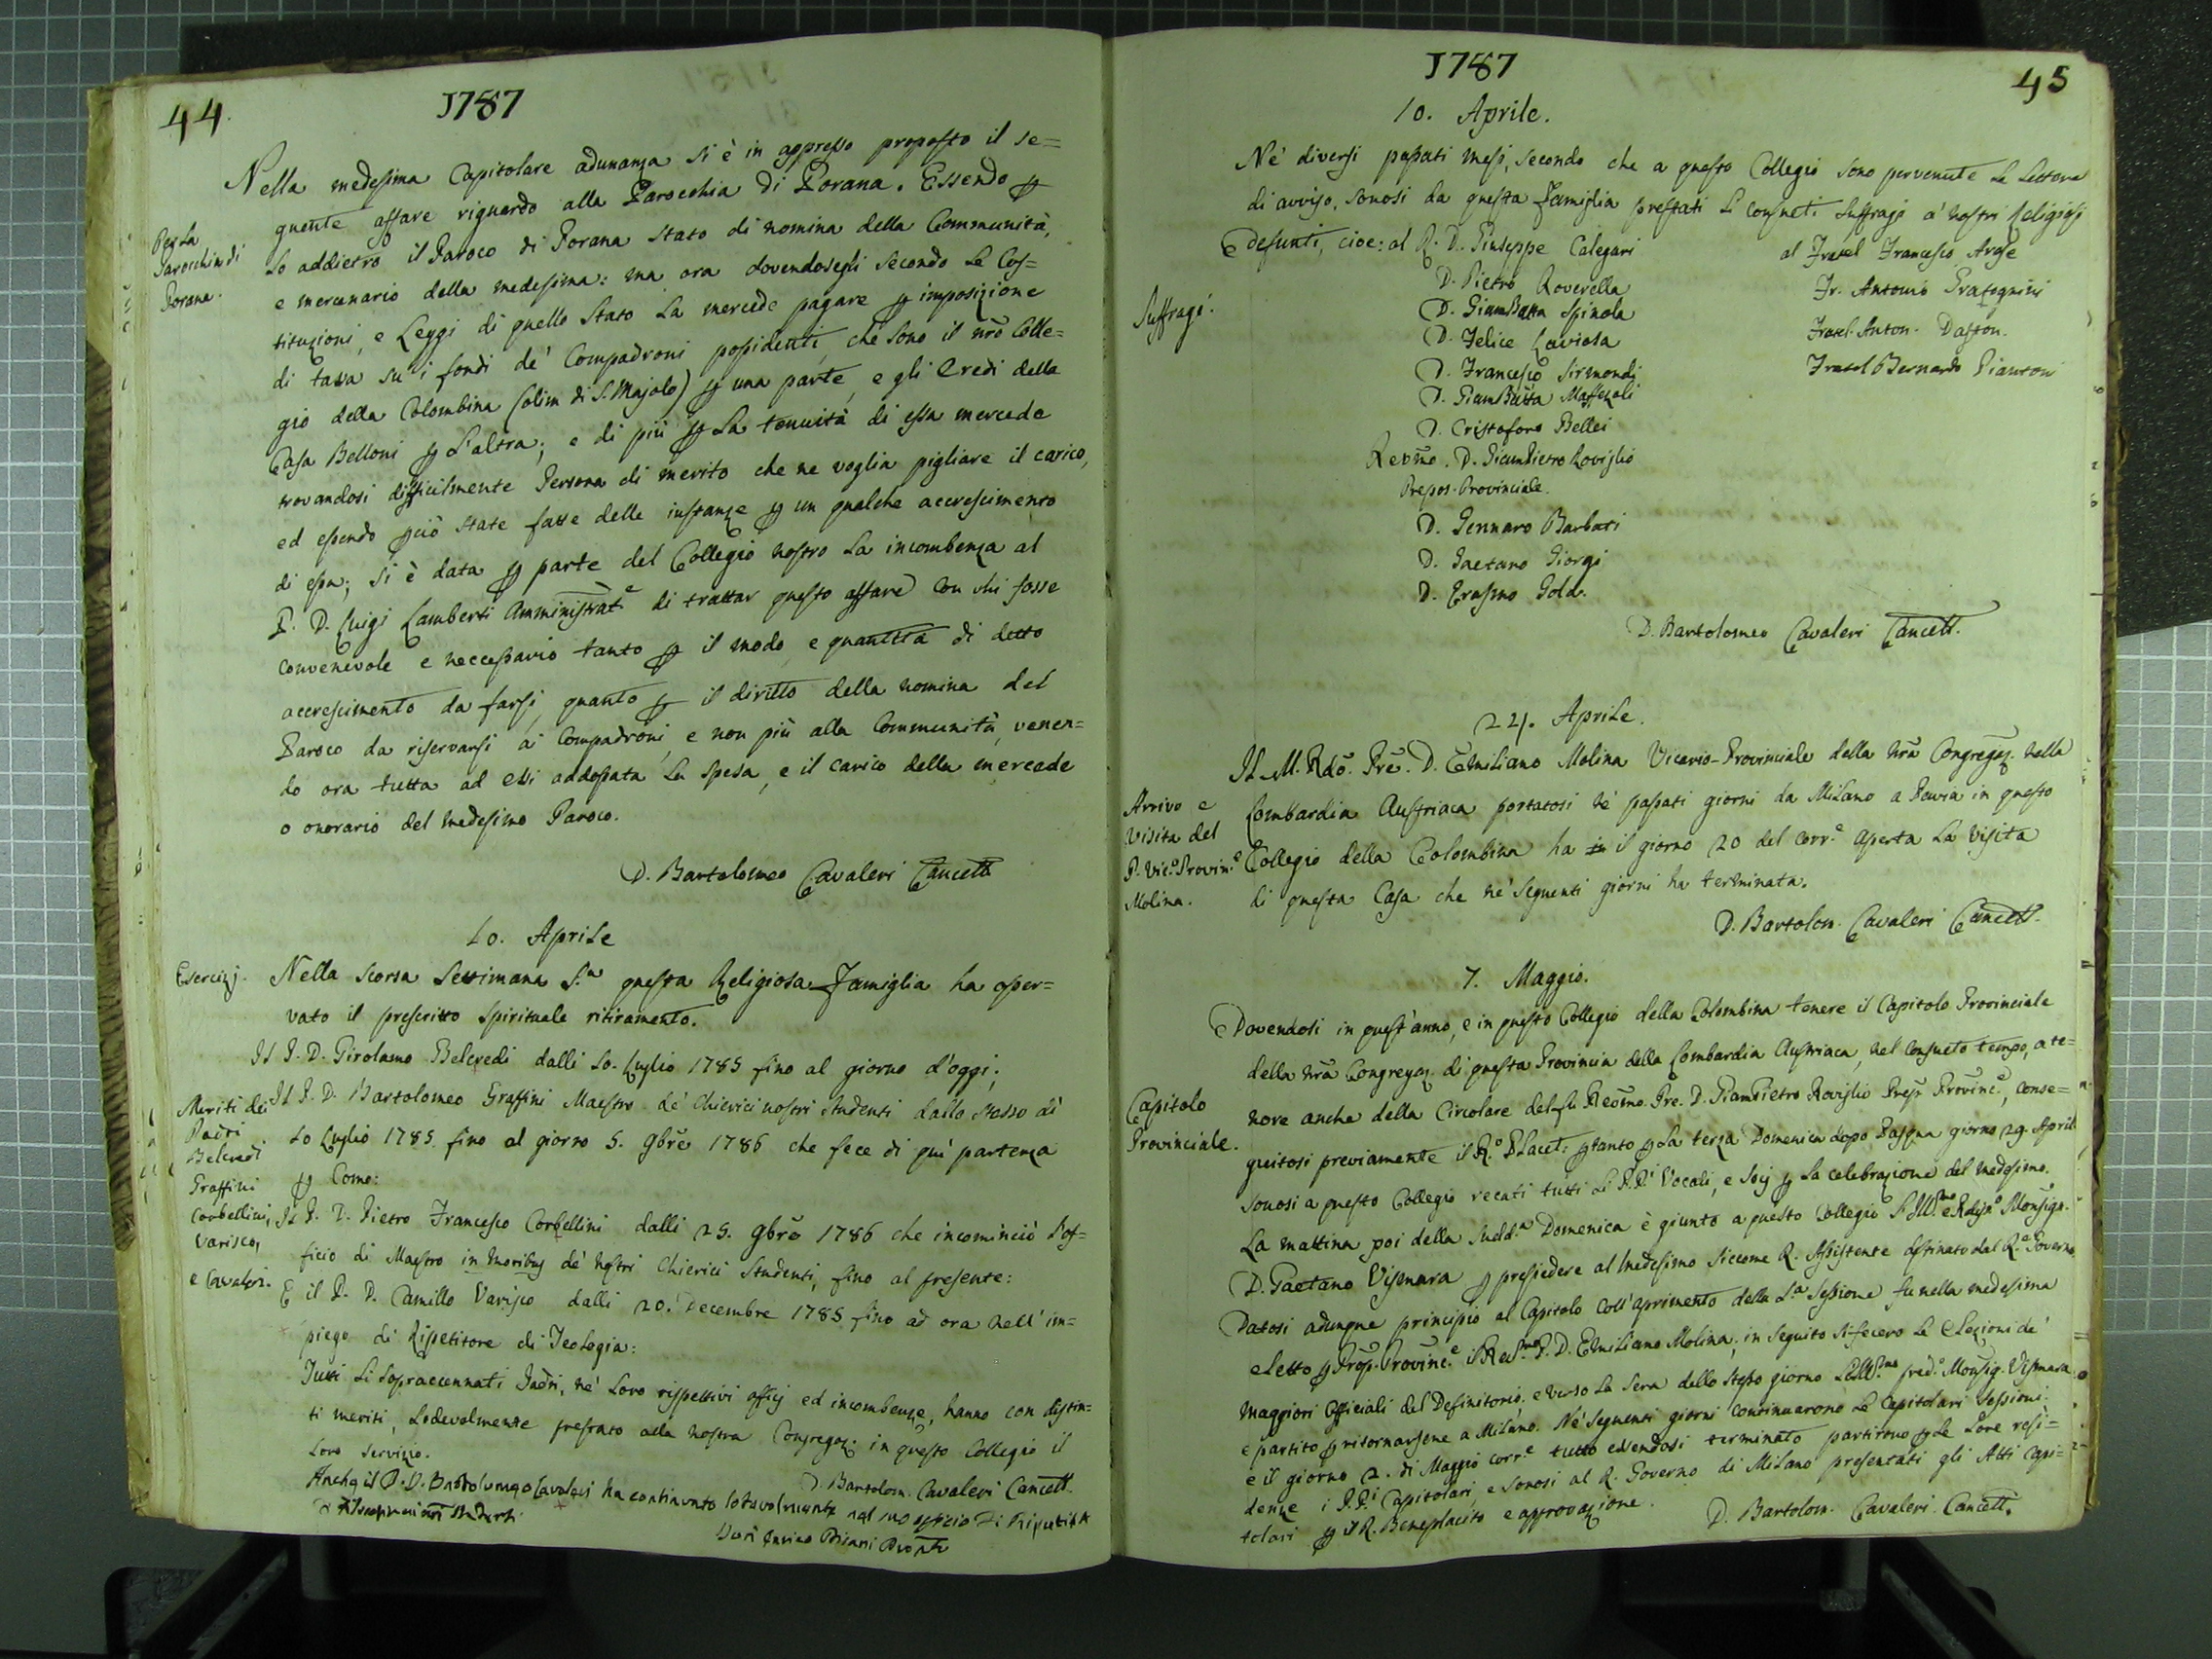 44.
1787
Nella medesima Capitolare adunanza si è in appresso proposto il se=
guente affare riguardo alla Parocchia di Porana. Essendo p
Per La
Parocchia di
Porana.
lo addietro il Paroco di Porana stato di nomina della Communità,
e mercenario della medesima: ma ora dovendosegli secondo le Cos=
tituzioni, e Leggi di quello Stato la mercede pagare p imposizione
di tassa su i fondi de' Compadroni possidenti, che sono il nrõ Colle=
gio della Colombina (olim di S. Majolo) p una parte, e gli Eredi della
Casa Belloni p l'altra; e di più p la tenuità di essa mercede
trovandosi difficilmente Persona di merito che ne voglia pigliare il carico,
ed essendo pciò state fatte delle instanze p un qualche accrescimento
di essa; si è data p parte del Collegio nostro la incombenza al
P. D. Luigi Lamberti Amministrat.e di trattar questo affare con chi fosse
convenevole e neccessario tanto p il modo, e quantità di detto
accrescimento da farsi, quanto p il diritto della nomina del
Paroco da riservarsi ai Compadroni, e non più alla Communità, venen=
do ora tutta ad essi addossata la spesa, e il carico della mercede
o onorario del medesimo Paroco.
D. Bartolomeo Cavaleri Cancell.
10. Aprile
Esercizj.
Nella scorsa Settimana S.a questa Religiosa Famiglia ha osser=
vato il prescritto spirituale ritiramento.
Il P. D. Girolamo Belcredi dalli 10. Luglio 1785 fino al giorno d'oggi;
Meriti dei
Padri
Belcredi
Graffini
Corbellini,
Varisco,
e Cavaleri.
Il P. D. Bartolomeo Graffini Maestro de' Chierici nostri studenti dallo stesso dì
10 Luglio 1785. fino al giorno 5. 9brẽ 1786 che fece di quì partenza
p Como:
Il P. D. Pietro Francesco Corbellini dalli 25. 9brẽ 1786 che incominciò l'of=
ficio di Maestro in moribus de' nostri Chierici Studenti, fino al presente:
E il P. D. Camillo Varisco dalli 20. Decembre 1785 fino ad ora nell' im=
piego di Ripetitore di Teologia:
Tutti li sopraccennati Padri, ne' loro rispettivi officj ed incombenze, hanno con distin=
ti meriti, lodevolmente prestato alla nostra Congregaz. in questo Collegio il
loro servizio.
D. Bartolom. Cavaleri Cancell.
Anche il P. D. Bartolomeo Cavaleri ha continuato lodevolmente nel suo officio di Ripetitore
45
1787
10. Aprile.
Ne' diversi passati mesi, secondo che a questo Collegio sono pervenute le Lettere
di avviso, sonosi da questa Famiglia prestati li consueti suffragj a' nostri Religiosi
Defunti, cioe: al R. D. Giuseppe Calegari
al Fratel Francesco Arese
D. Pietro Roverella
Fr. Antonio Gratognini
Suffragj.
D. Giambatta Spinola
Fratel. Anton. Daston.
D. Felice Laviosa
Fratel Bernardo Piantoni
D. Francesco Sirmondi
D. Giambatta Maffezoli
D. Cristoforo Bellei
Revm̃o. D. Giampietro Roviglio
Prepos. Provinciale.
D. Gennaro Barbati
D. Gaetano Giorgi
D. Erasmo Gold.
D. Bartolomeo Cavaleri Cancell.
24. Aprile.
Il M. Rdõ. Prẽ. D. Emiliano Molina Vicario-Provinciale della nrã Congregaz. nella
Arrivo e
visita del
P. Vic.o Provin.e
Molina.
Lombardia Austriaca portatosi ne' passati giorni da Milano a Pavia in questo
Collegio della Colombina ha il giorno 20 del corr.e aperta la visita
di questa Casa che ne' seguenti giorni ha terminata.
D. Bartolom. Cavaleri Cancell.
7. Maggio.
Dovendosi in quest'anno, e in questo Collegio della Colombina tenere il Capitolo Provinciale
della nrã Congregaz. di questa Provincia della Lombardia Austriaca, nel consueto tempo, a te=
Capitolo
Provinciale.
nore anche della Circolare del fu Revm̃o. Pre. D. Giampietro Roviglio Prep. Provinc.e, conse=
guitosi previamente il R.o Placet: ptanto p la terza Domenica dopo Pasqua giorno 29. Aprile
sonosi a questo Collegio recati tutti li P.P.i Vocali, e Socj p la celebrazione del medesimo.
La mattina poi della sudd.a Domenica è giunto a questo Collegio l'Ill.mo e Rdss.o Monsigr.
D. Gaetano Vismara p presiedere al medesimo siccome R. Assistente destinato dal R.o Governo.
Datosi adunque principio al Capitolo coll'aprimento della S.a Sessione fu nella medesima
eletto p Prep. Provinc.e il Revs.mo P. D. Emiliano Molina, in seguito si fecero le Elezioni de'
maggiori Officiali del Definitorio; e verso la sera dello stesso giorno l'Ill.mo pred.o Monsig. Vismara
è partito p ritornarsene a Milano. Ne' seguenti giorni continuarono le Capitolari Sessioni,
e il giorno 2. di Maggio corr.e tutto essendosi terminato partirono p le loro resi=
denze i P.P.i Capitolari, e sonosi al R. Governo di Milano presentati gli Atti Capi=
tolari p il R. Beneplacito e approvazione.
D. Bartolom. Cavaleri Cancell.